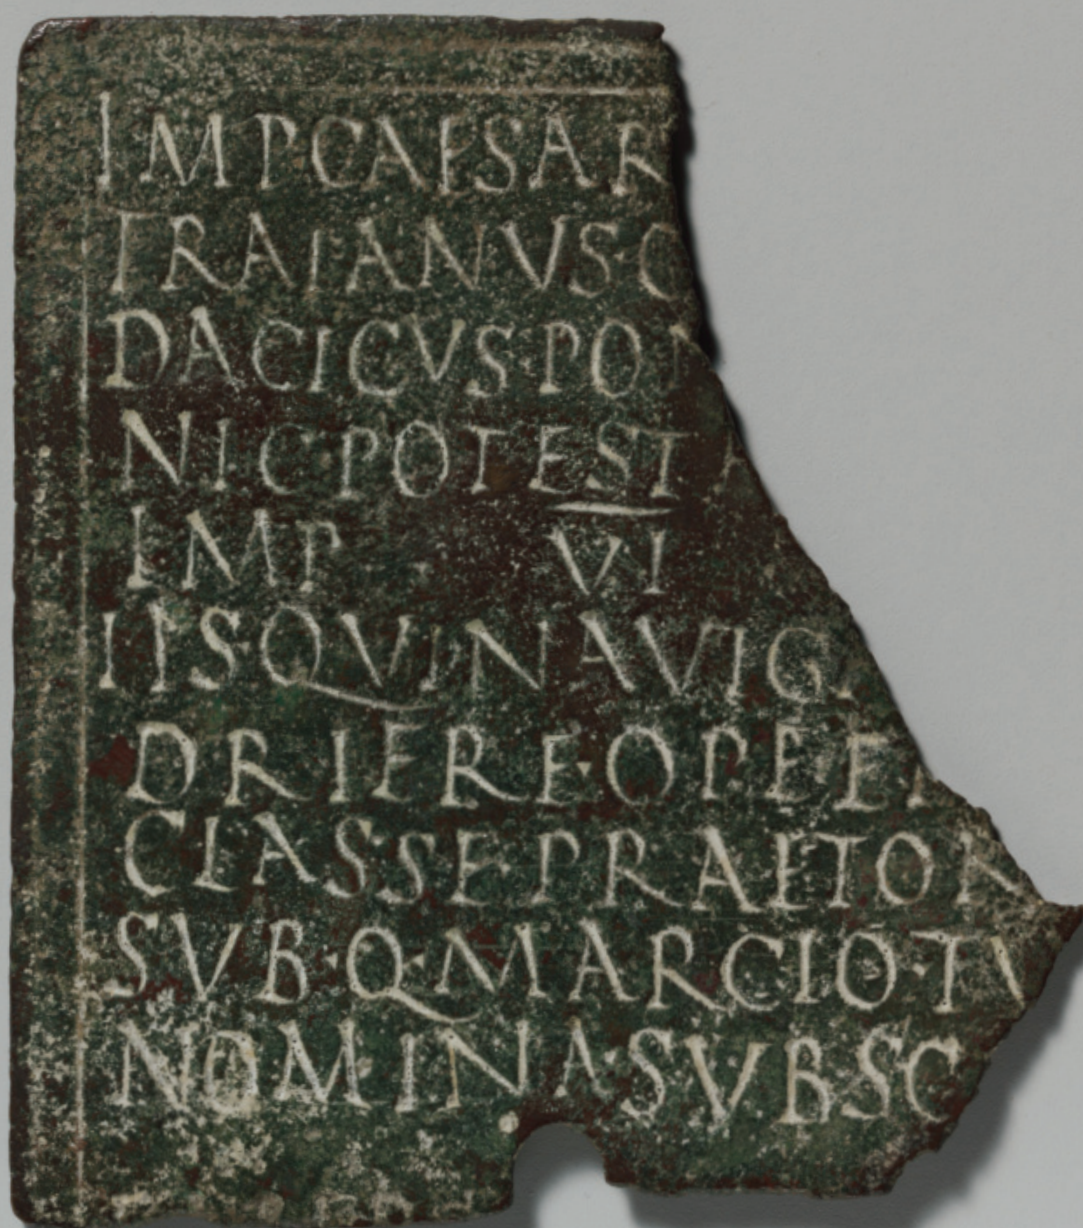 IMP CAESAR
TRAIANVS·G
DACICVS·PON
NIC POTEST
IMP VI
IIS QVI NAVIG
DRIERE·OPEE
CLASSE PRAETOR
SVB·Q·MARCIO·TV
NOMINA·SVBSC